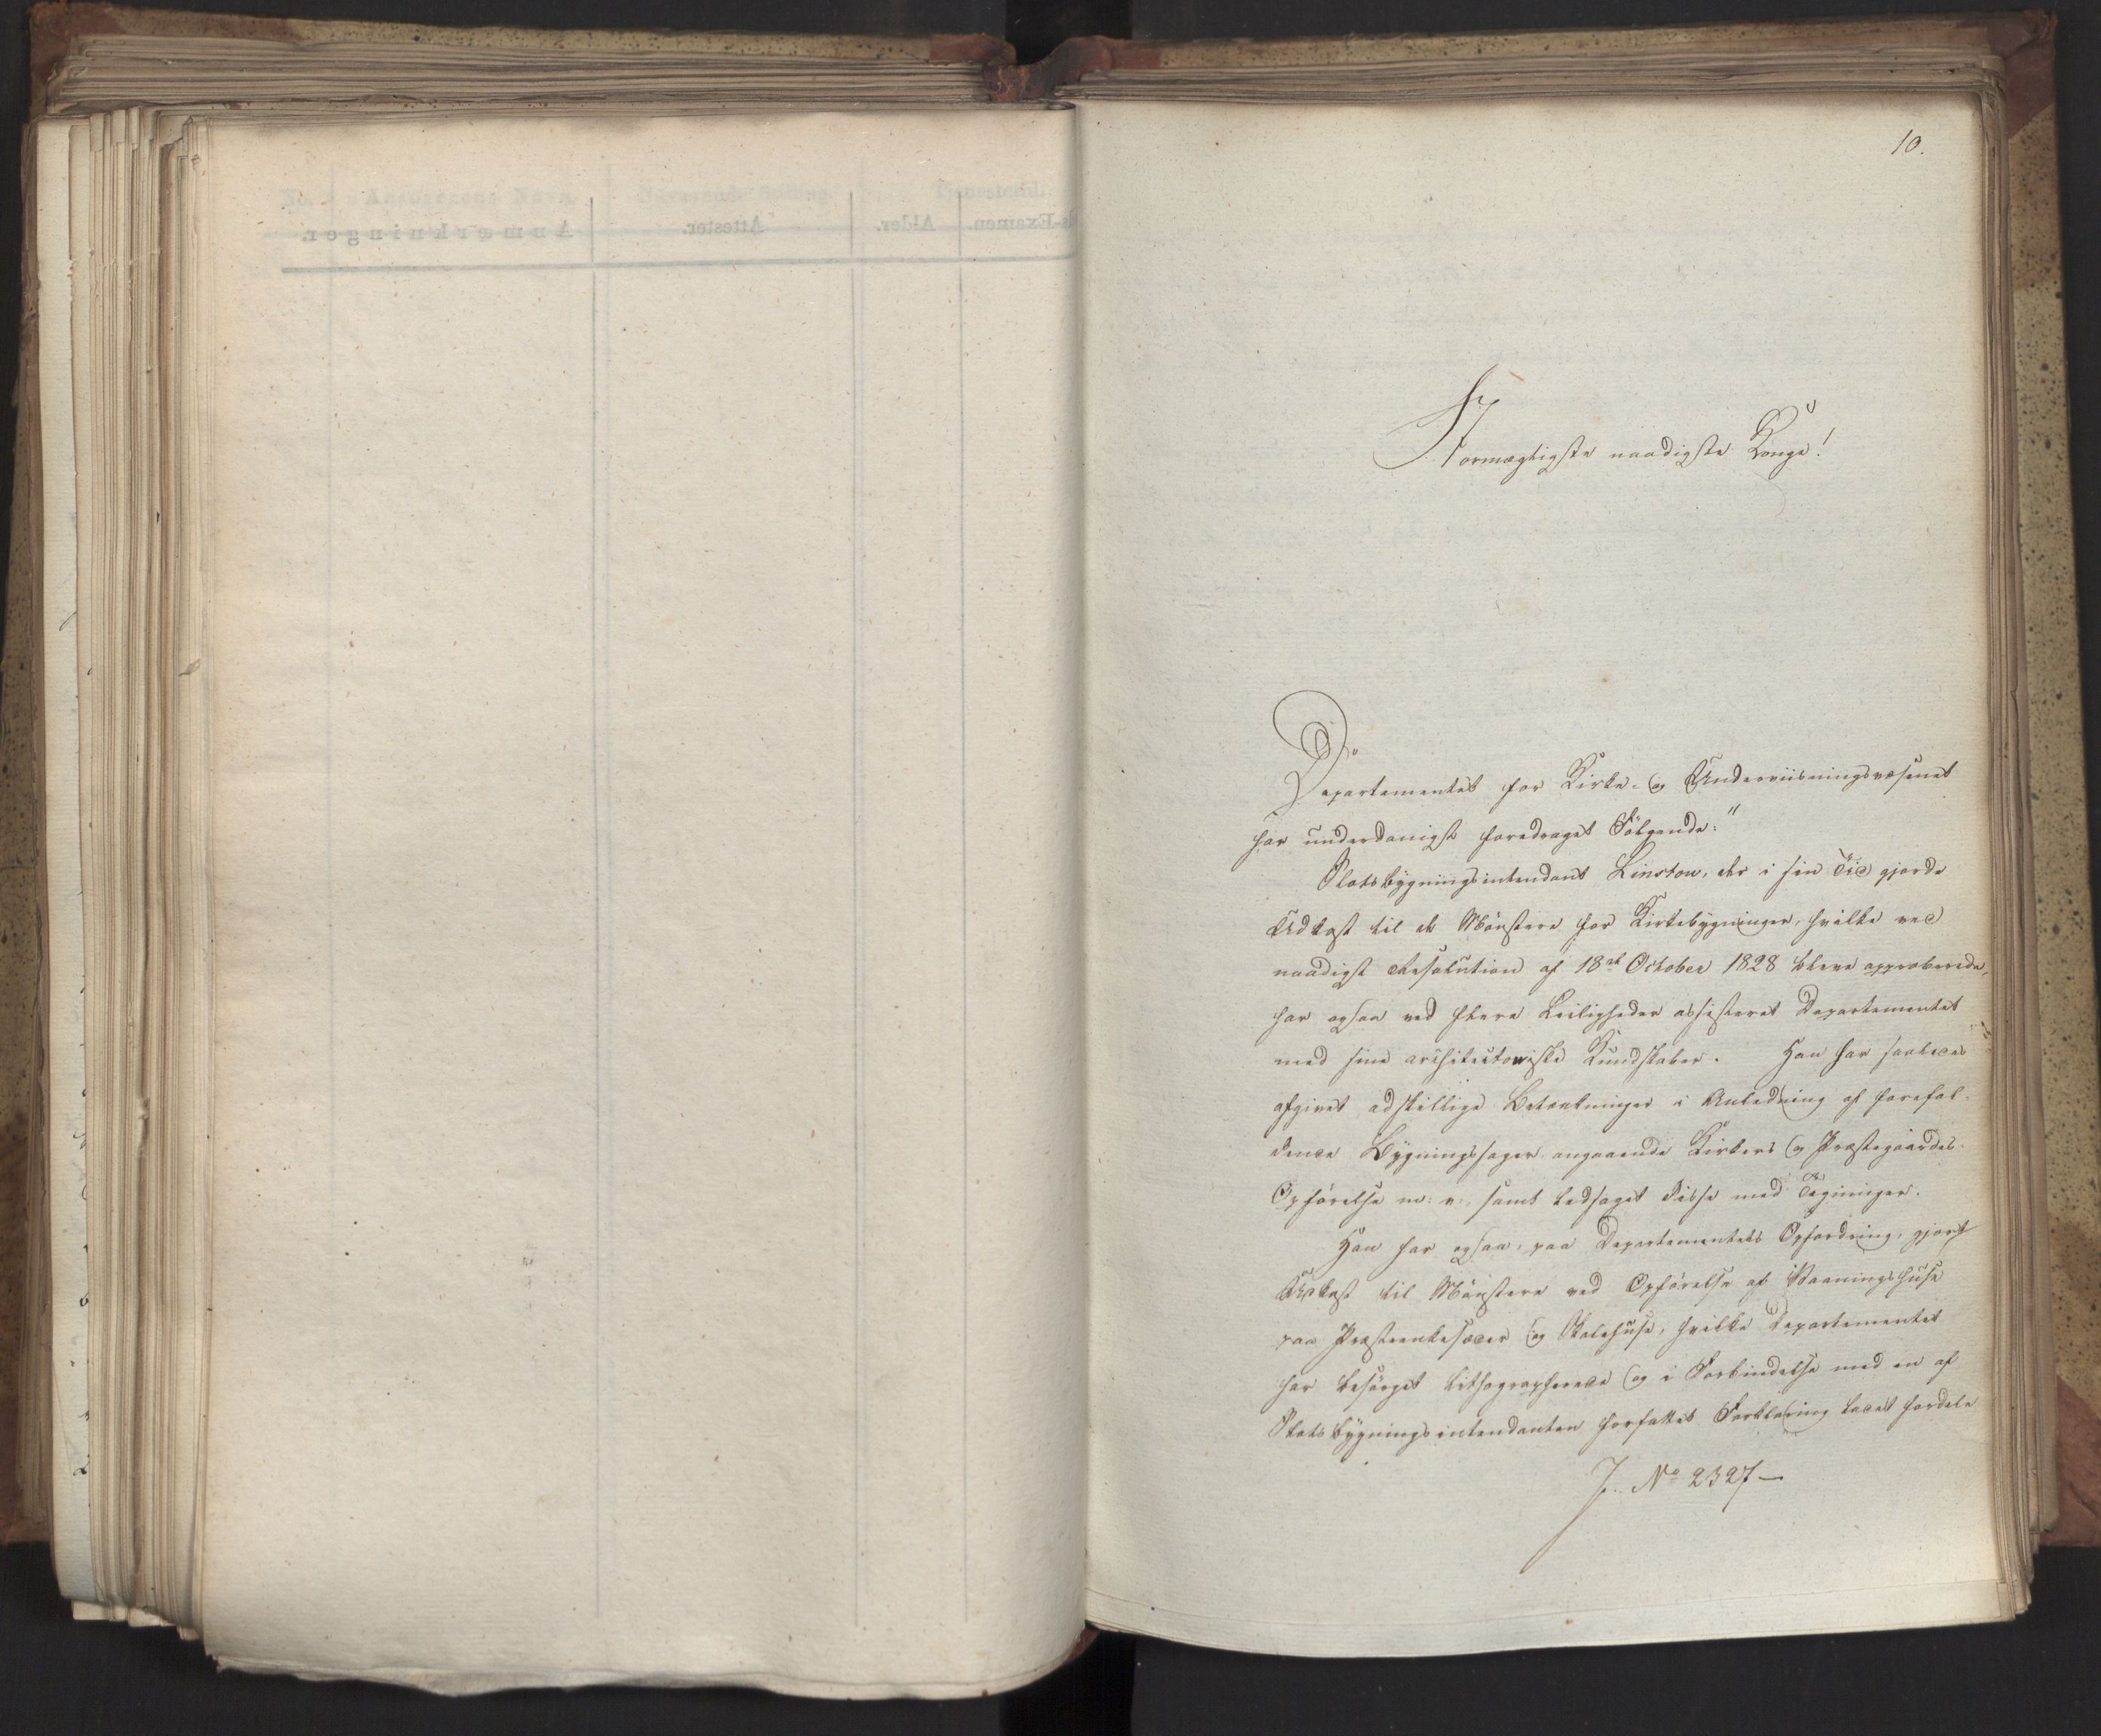 10.
Stormægtigste naadigste Konge!
Departementet for Kirke- og Underviisningsvæsenet
har underdanigst foredraget Følgende:"
Slotsbygningsintendant Linstow, der i sin Tid gjorde
Udkast til de Mønstere for Kirkebygninger, hvilke ved
naadigst Resolution af 18de October 1828 bleve approberede,
har ogsaa ved flere Leiligheder assisteret Departementet
med sine architectoniske Kundskaber. Han har saaledes
afgivet adskillige Betænkninger i Anledning af forefal-
dende Bygningssager angaaende Kirkers og Præstegaardes
Opførelse m: v:, samt ledsaget disse med Tegninger.
Han har ogsaa, paa Departementets Opfordring, gjort
Udkast til Mønstere ved Opførelse af Vaaningshuse
paa Præsteenkesæder og Skolehuse, hvilke Departementet
har besørget lithographerede og i Forbindelse med en af
Slotsbygningsintendanten forfattet Forklaring ladet fordele
J. No 2327—
Anmærkninger.
Attester.
Alder.
Examen.